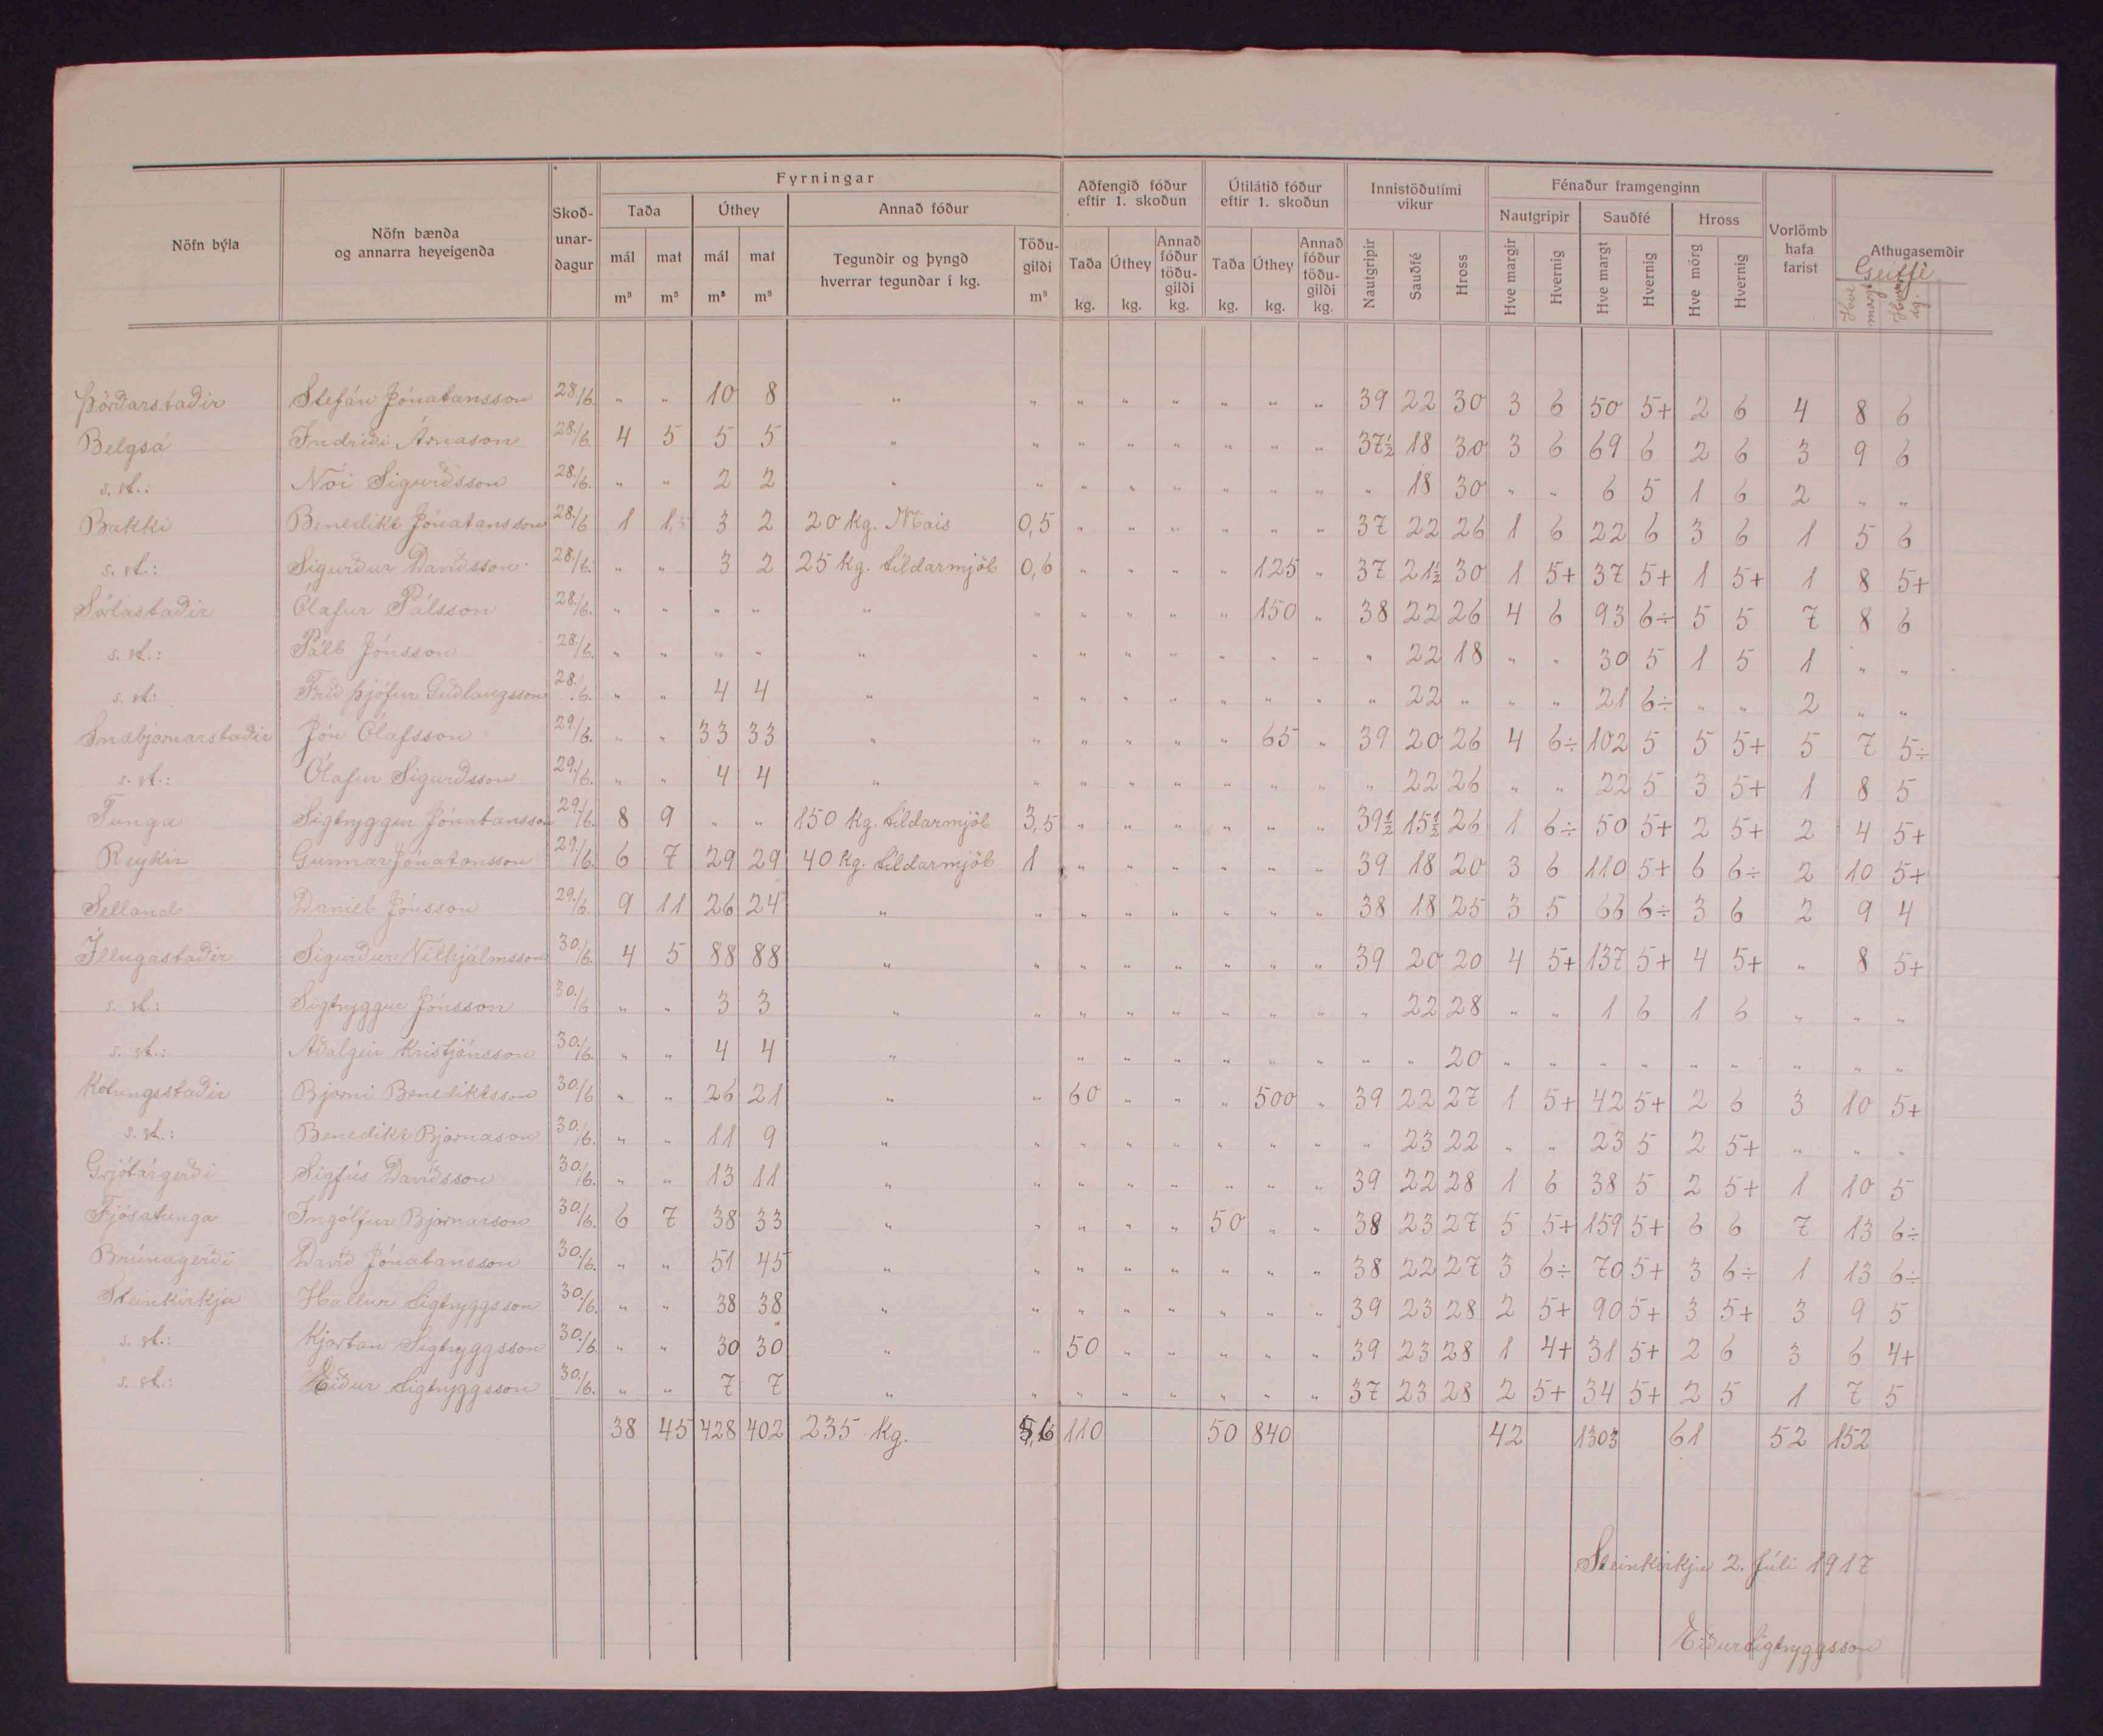 Fyrningar
Aðfengið fóður eftir 1. skoðun
Útilátið fóður eftir 1. skoðun
Innistöðutími vikur
Fénaður framgenginn
Nöfn býla
Nöfn bænda og annarra heyeigenda
Skoð-unar-dagur
Taða
Úthey
Annað fóður
Nautgripir
Sauðfé
Hross
Vorlömb hafa farist
Athugasemdir
Geitfé
mál m³ mat m³ mál m³ mat m³
Tegundir og þyngd hverrar tegundar í kg.
Töðu-gildi m³
Taða kg. Úthey kg. Annað fóður töðu-gildi kg.
Taða kg. Úthey kg. Annað fóður töðu-gildi kg.
Nautgripir Sauðfé Hross
Hve margir Hvernig Hve margt Hvernig Hve mörg Hvernig
Hve margt Hvernig
Þórðarstaðir Stefán Jónatansson 28/6 " " 10 8 " " " " " " " " 39 22 30 3 6 50 5+ 2 6 4 8 6
Belgsá Indriði Árnason 28/6. 4 5 5 5 " " " " " " " " 37½ 18 30 3 6 69 6 2 6 3 9 6
s. st.: Nói Sigurðsson 28/6. " " 2 2 " " " " " " " " " 18 30 " " 6 5 1 6 2 " "
Bakki Benedikt Jónatansson 28/6 1 1,5 3 2 20 kg. Mais 0,5 " " " " " " 37 22 26 1 6 22 6 3 6 1 5 6
s. st.: Sigurður Davíðsson 28/6. " " 3 2 25 kg. Síldarmjöl 0,6 " " " " 125 " 37 21½ 30 1 5+ 37 5+ 1 5+ 1 8 5+
Sörlastaðir Ólafur Pálsson 28/6. " " " " " " " " " " 150 " 38 22 26 4 6 93 6÷ 5 5 7 8 6
s. st.: Páll Jónsson 28/6. " " " " " " " " " " " " " 22 18 " " 30 5 1 5 1 " "
s. st.: Friðþjófur Guðlaugsson 28/6. " " 4 4 " " " " " " " " " 22 " " " 21 6÷ " " 2 " "
Snæbjarnarstaðir Jón Ólafsson 29/6. " " 33 33 " " " " " " 65 " 39 20 26 4 6÷ 102 5 5 5+ 5 7 5÷
s. st.: Ólafur Sigurðsson 29/6. " " 4 4 " " " " " " " " " 22 26 " " 22 5 3 5+ 1 8 5
Tunga Sigtryggur Jónatansson 29/6. 8 9 " " 150 kg. Síldarmjöl 3,5 " " " " " " 39½ 15½ 26 1 6÷ 50 5+ 2 5+ 2 4 5+
Reykir Gunnar Jónatansson 29/6. 6 7 29 29 40 kg. Síldarmjöl 1 " " " " " " 39 18 20 3 6 110 5+ 6 6÷ 2 10 5+
Selland Daníel Jónsson 29/6. 9 11 26 24 " " " " " " " " 38 18 25 3 5 66 6÷ 3 6 2 9 4
Illugastaðir Sigurður Vilhjálmsson 30/6. 4 5 88 88 " " " " " " " " 39 20 20 4 5+ 137 5+ 4 5+ " 8 5+
s. st.: Sigtryggur Jónsson 30/6 " " 3 3 " " " " " " " " " 22 28 " " 1 6 1 6 " " "
s. st.: Aðalgeir Kristjánsson 30/6. " " 4 4 " " " " " " " " " 20 " " " " " " " " "
Kotungsstaðir Bjarni Benediktsson 30/6 " " 26 21 " " 60 " " " 500 " 39 22 27 1 5+ 42 5+ 2 6 3 10 5+
s. st.: Benedikt Bjarnason 30/6. " " 11 9 " " " " " " " " " 23 22 " " 23 5 2 5+ " " "
Grjótárgerði Sigfús Davíðsson 30/6. " " 13 11 " " " " " " " " 39 22 28 1 6 38 5 2 5+ 1 10 5
Fjósatunga Ingólfur Bjarnarson 30/6. 6 7 38 33 " " " " " 50 " " 38 23 27 5 5+ 159 5+ 6 6 7 13 6÷
Brúnagerði Davíð Jónatansson 30/6. " " 51 45 " " " " " " " " 38 22 27 3 6÷ 70 5+ 3 6÷ 1 13 6÷
Steinkirkja Hallur Sigtryggsson 30/6. " " 38 38 " " " " " " " " 39 23 28 2 5+ 90 5+ 3 5+ 3 9 5
s. st.: Kjartan Sigtryggsson 30/6 " " 30 30 " " 50 " " " " " 39 23 28 1 4+ 31 5+ 2 6 3 6 4+
s. st.: Eiður Sigtryggsson 30/6. " " 7 7 " " " " " " " " 37 23 28 2 5+ 34 5+ 2 5 1 7 5
38 45 428 402 235 kg. 5,6 110 50 840 42 1303 61 52 152
Steinkirkju 2. Júlí 1917
Eiður Sigtryggsson